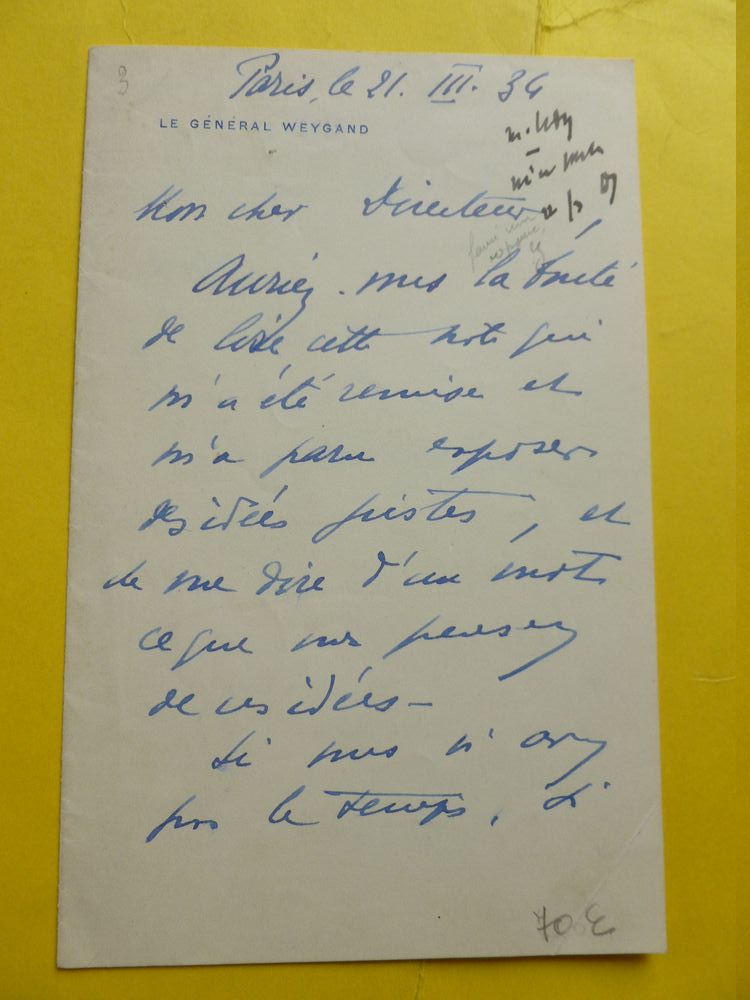 3
Paris, le 21. III. 34
LE GÉNÉRAL WEYGAND
Mon cher Directeur,
Auriez-vous la bonté
de lire cette note qui
m'a été remise et
m'a paru exposer
des idées justes, et
de me dire d'un mot
ce que vous pensez
de ces idées —
Si vous n'avez
pas le temps, si
70 €